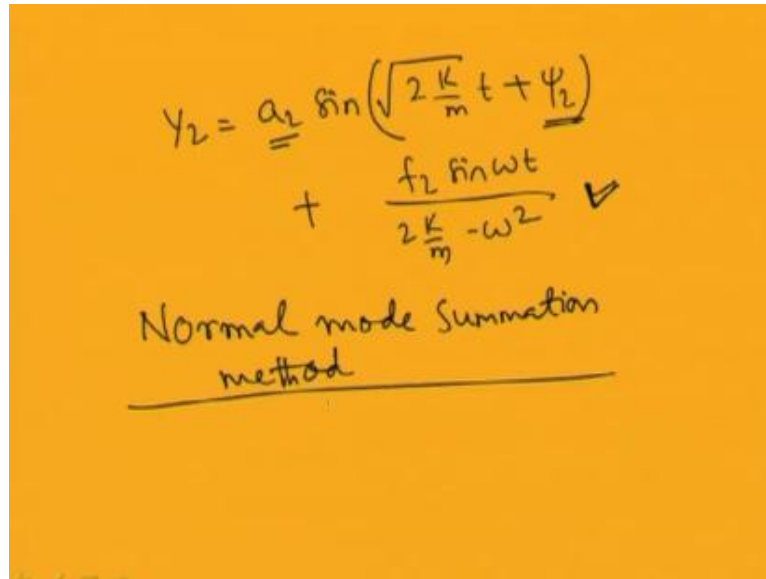 y₂ = a₂ sin(√(2 K/m) t + ψ₂)
+ f₂ sin ωt / (2 K/m - ω²) ✓
Normal mode Summation
method